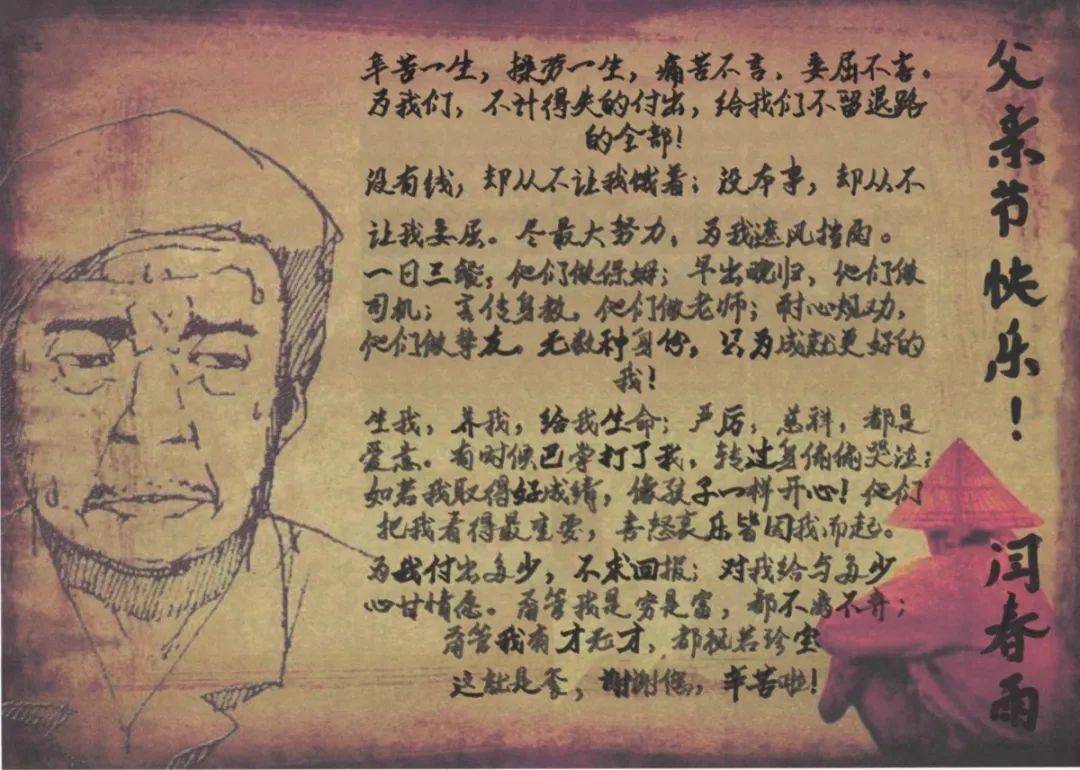 父亲节快乐！
辛苦一生，操劳一生，痛苦不言，委屈不言。
为我们，不计得失的付出，给我们不留退路
的全部！
没有钱，却从不让我饿着；没本事，却从不
让我委屈。尽最大努力，为我遮风挡雨。
一日三餐，他们做保姆；早出晚归，他们做
司机；言传身教，他们做老师；耐心规劝，
他们做挚友。无数种身份，只为成就更好的
我！
生我，养我，给我生命；严厉，慈祥，都是
爱意。有时候巴掌打了我，转过身偷偷哭泣；
如若我取得好成绩，像孩子一样开心！他们
把我看得最重要，喜怒哀乐皆因我而起。
为我付出多少，不求回报；对我给与多少
心甘情愿。甭管我是穷是富，都不离不弃；
甭管我有才无才，都视若珍宝
这就是爹，谢谢您，辛苦啦！
闫春雨